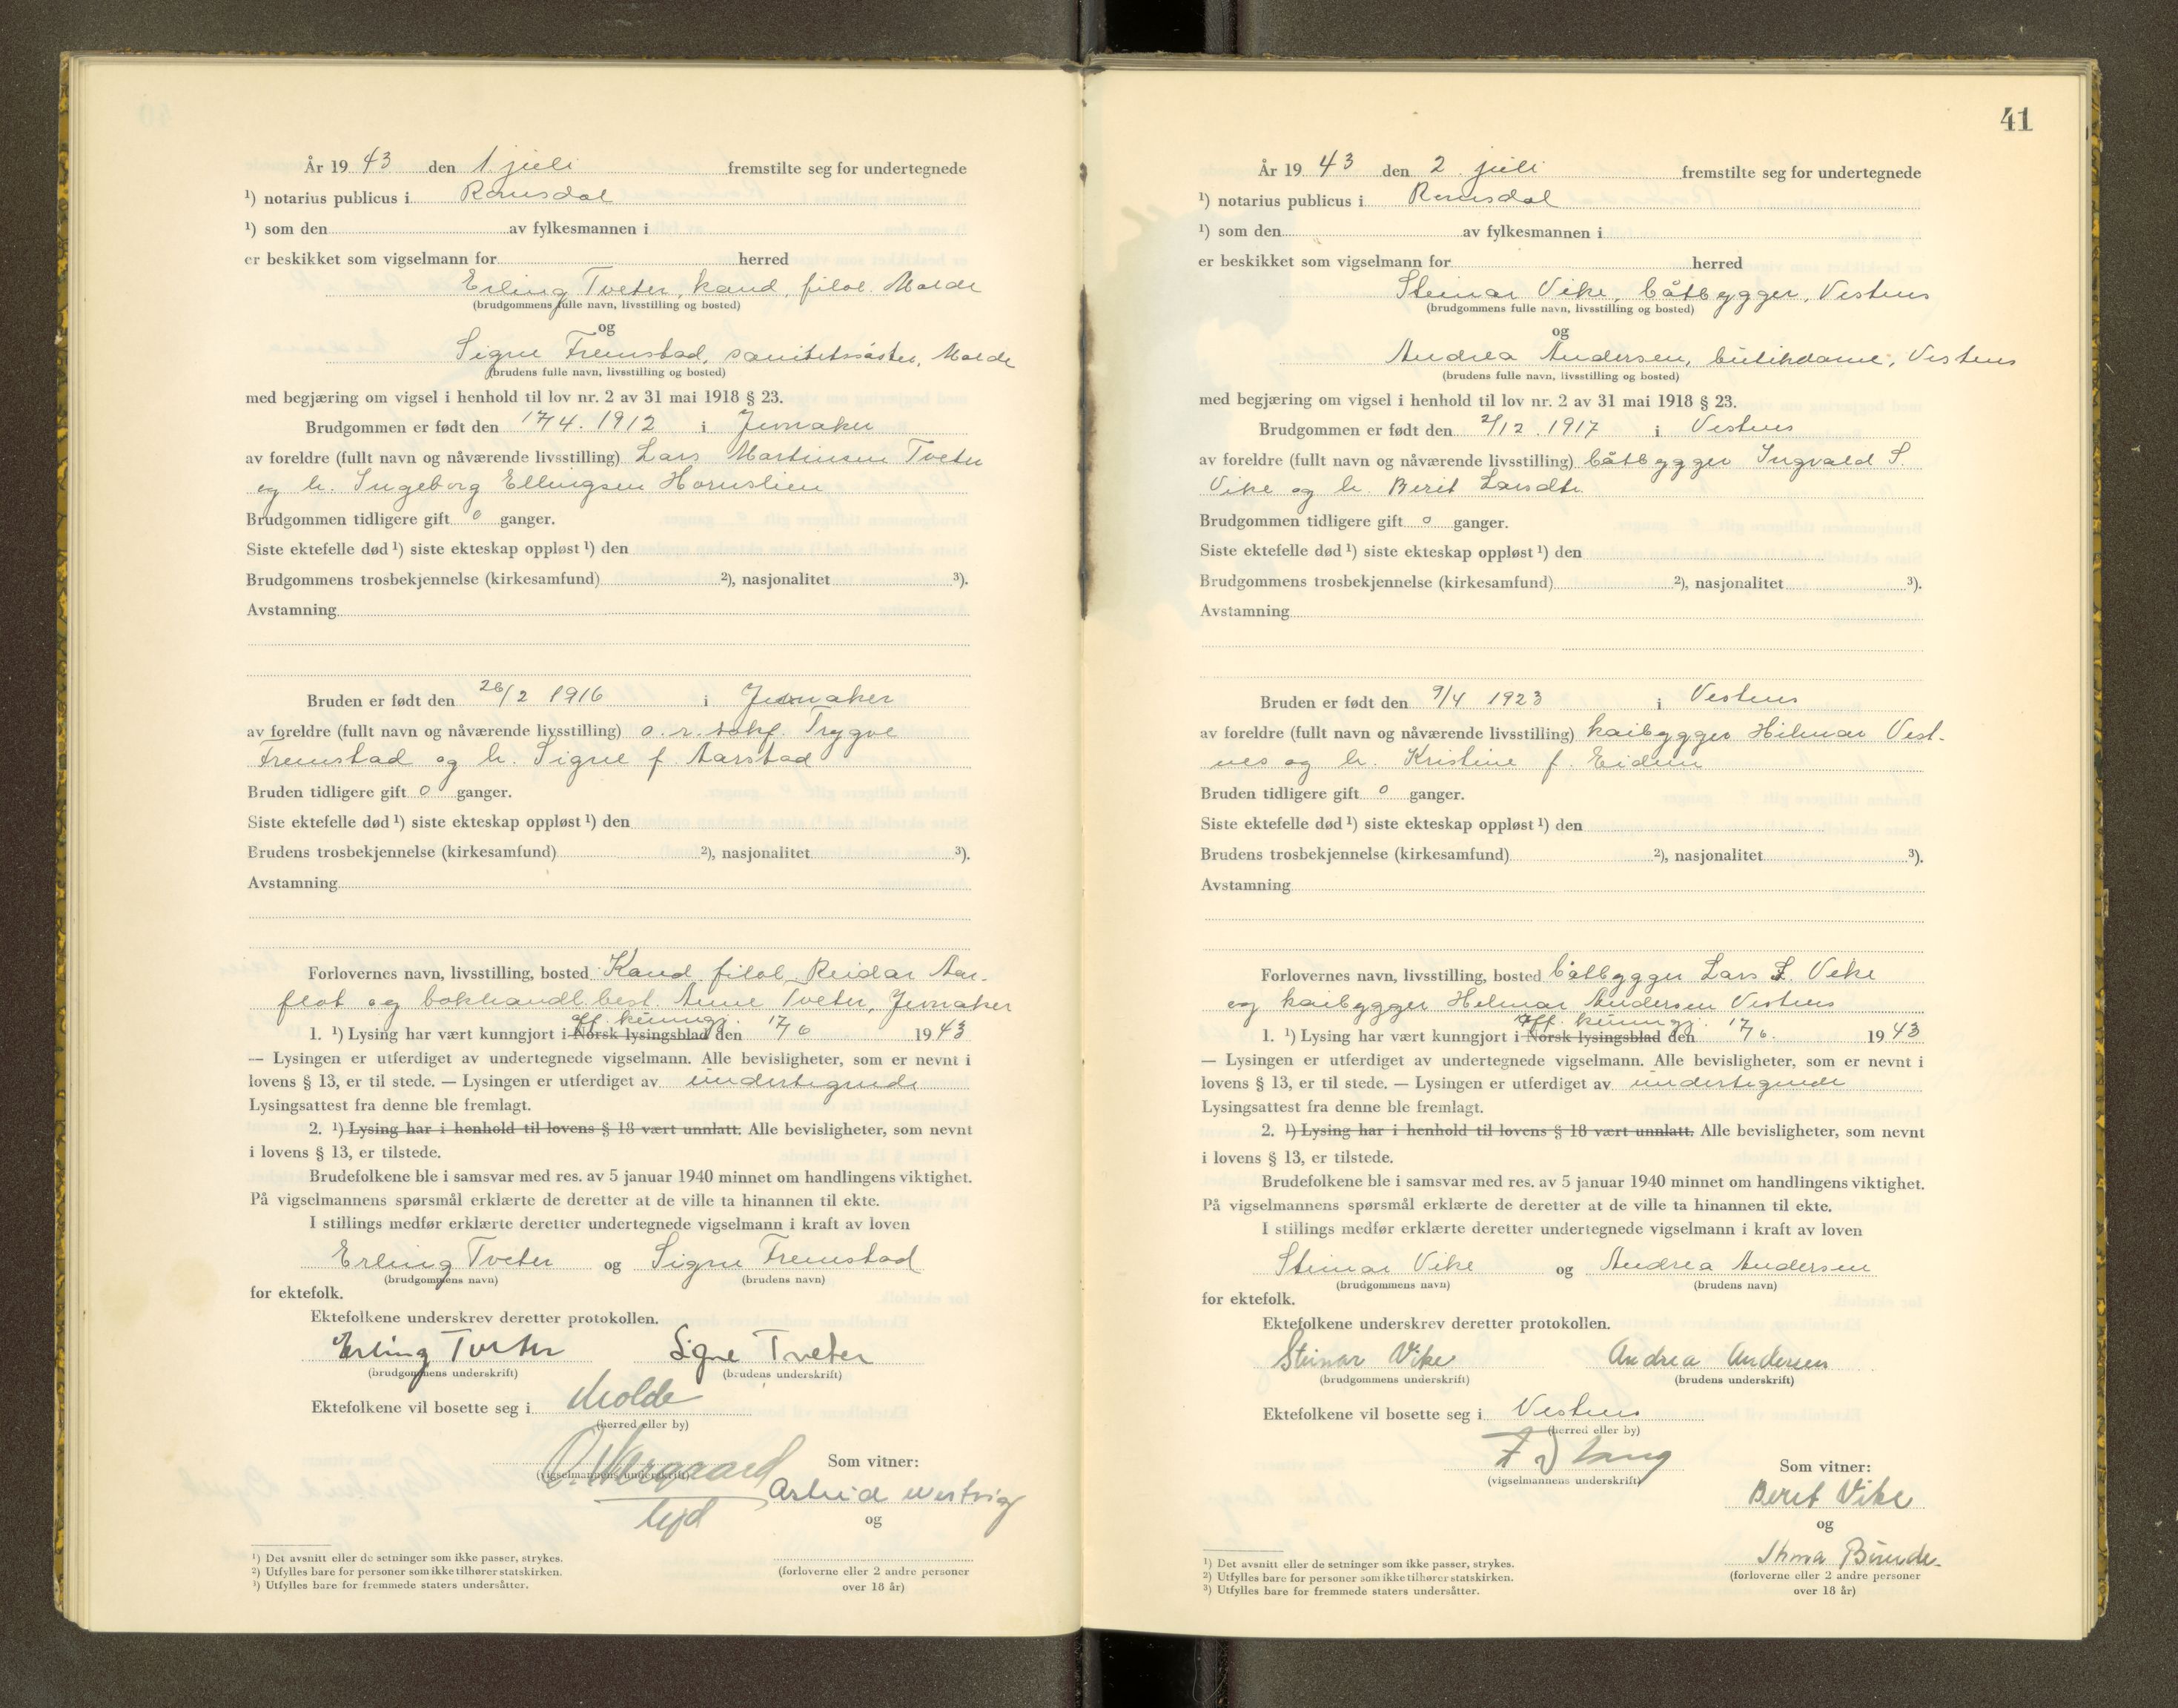 År 19 43 den 1 juli fremstilte seg for undertegnede
¹) notarius publicus i Romsdal
¹) som den av fylkesmannen i
er beskikket som vigselmann for herred
Erling Tveter, kand. filol. Molde
(brudgommens fulle navn, livsstilling og bosted)
og
Signe Fremstad, sanitetssøster, Molde
(brudens fulle navn, livsstilling og bosted)
med begjæring om vigsel i henhold til lov nr. 2 av 31 mai 1918 § 23.
Brudgommen er født den 17/4. 1912 i Jevnaker
av foreldre (fullt navn og nåværende livsstilling) Lars Martinsen Tveter
og h. Ingeborg Ellingsen Hornslien
Brudgommen tidligere gift 0 ganger.
Siste ektefelle død ¹) siste ekteskap oppløst ¹) den
Brudgommens trosbekjennelse (kirkesamfund) ²), nasjonalitet ³).
Avstamning
Bruden er født den 26/2 1916 i Jevnaker
av foreldre (fullt navn og nåværende livsstilling) o.r.sakf. Trygve
Fremstad og h. Signe f. Aarstad
Bruden tidligere gift 0 ganger.
Siste ektefelle død ¹) siste ekteskap oppløst ¹) den
Brudens trosbekjennelse (kirkesamfund) ²), nasjonalitet ³).
Avstamning
Forlovernes navn, livsstilling, bosted Kand filol. Reidar Aar-
flot og bokhandl.best. Anne Tveter, Jevnaker
off. kunngj.
1. ¹) Lysing har vært kunngjort i Norsk lysingsblad den 17/6 19 43
— Lysingen er utferdiget av undertegnede vigselmann. Alle bevisligheter, som er nevnt i
lovens § 13, er til stede. — Lysingen er utferdiget av undertegnede
Lysingsattest fra denne ble fremlagt.
2. ¹) Lysing har i henhold til lovens § 18 vært unnlatt. Alle bevisligheter, som nevnt
i lovens § 13, er tilstede.
Brudefolkene ble i samsvar med res. av 5 januar 1940 minnet om handlingens viktighet.
På vigselmannens spørsmål erklærte de deretter at de ville ta hinannen til ekte.
I stillings medfør erklærte deretter undertegnede vigselmann i kraft av loven
Erling Tveter og Signe Fremstad
(brudgommens navn) (brudens navn)
for ektefolk.
Ektefolkene underskrev deretter protokollen.
Erling Tveter Signe Tveter
(brudgommens underskrift) (brudens underskrift)
Ektefolkene vil bosette seg i Molde
(herred eller by)
Som vitner:
(vigselmannens underskrift)
Astrid
og
¹) Det avsnitt eller de setninger som ikke passer, strykes.
²) Utfylles bare for personer som ikke tilhører statskirken.
³) Utfylles bare for fremmede staters undersåtter.
(forloverne eller 2 andre personer
over 18 år)
41
År 19 43 den 2 juli fremstilte seg for undertegnede
¹) notarius publicus i Romsdal
¹) som den av fylkesmannen i
er beskikket som vigselmann for herred
Steinar Vike, båtbygger, Vestnes
(brudgommens fulle navn, livsstilling og bosted)
og
Andrea Andersen, butikdame, Vestnes
(brudens fulle navn, livsstilling og bosted)
med begjæring om vigsel i henhold til lov nr. 2 av 31 mai 1918 § 23.
Brudgommen er født den 2/12. 1917 i Vestnes
av foreldre (fullt navn og nåværende livsstilling) båtbygger Ingvald S.
Vike og h. Berit Larsdtr.
Brudgommen tidligere gift 0 ganger.
Siste ektefelle død ¹) siste ekteskap oppløst ¹) den
Brudgommens trosbekjennelse (kirkesamfund) ²), nasjonalitet ³).
Avstamning
Bruden er født den 9/4 1923 i Vestnes
av foreldre (fullt navn og nåværende livsstilling) kaibygger Hilmar Vest-
nes og h. Kristine f. Eidem
Bruden tidligere gift 0 ganger.
Siste ektefelle død ¹) siste ekteskap oppløst ¹) den
Brudens trosbekjennelse (kirkesamfund) ²), nasjonalitet ³).
Avstamning
Forlovernes navn, livsstilling, bosted båtbygger Lars Vike
og kaibygger Helmar Andersen Vestnes
off. kunngj.
1. ¹) Lysing har vært kunngjort i Norsk lysingsblad den 17/6. 19 43
— Lysingen er utferdiget av undertegnede vigselmann. Alle bevisligheter, som er nevnt i
lovens § 13, er til stede. — Lysingen er utferdiget av undertegnede
Lysingsattest fra denne ble fremlagt.
2. ¹) Lysing har i henhold til lovens § 18 vært unnlatt. Alle bevisligheter, som nevnt
i lovens § 13, er tilstede.
Brudefolkene ble i samsvar med res. av 5 januar 1940 minnet om handlingens viktighet.
På vigselmannens spørsmål erklærte de deretter at de ville ta hinannen til ekte.
I stillings medfør erklærte deretter undertegnede vigselmann i kraft av loven
Steinar Vike og Andrea Andersen
(brudgommens navn) (brudens navn)
for ektefolk.
Ektefolkene underskrev deretter protokollen.
Steinar Vike Andrea Andersen
(brudgommens underskrift) (brudens underskrift)
Ektefolkene vil bosette seg i Vestnes
(herred eller by)
(vigselmannens underskrift)
Som vitner:
Berit Vike
og
(forloverne eller 2 andre personer
over 18 år)
¹) Det avsnitt eller de setninger som ikke passer, strykes.
²) Utfylles bare for personer som ikke tilhører statskirken.
³) Utfylles bare for fremmede staters undersåtter.